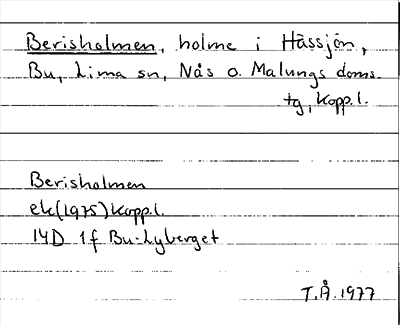 Berisholmen, holme i Hässjön,
Bu, Lima sn, Nås o. Malungs doms.
tg, Kopp.l.
Berisholmen
ek(1975) Kopp.l.
14D 1f Bu-Lyberget
T.Å. 1977